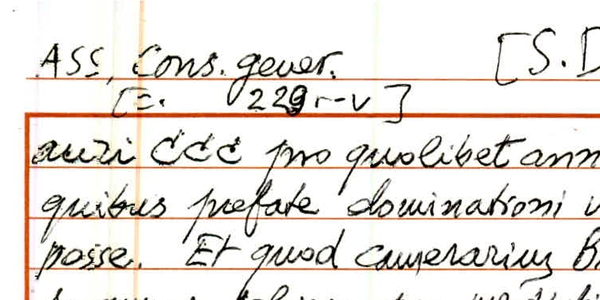 ASS, Cons. gener. [S.D
[c. 229r-v]
auri CCC pro quolibet ann
quibus prefate dominationi
posse. Et quod camerarius B